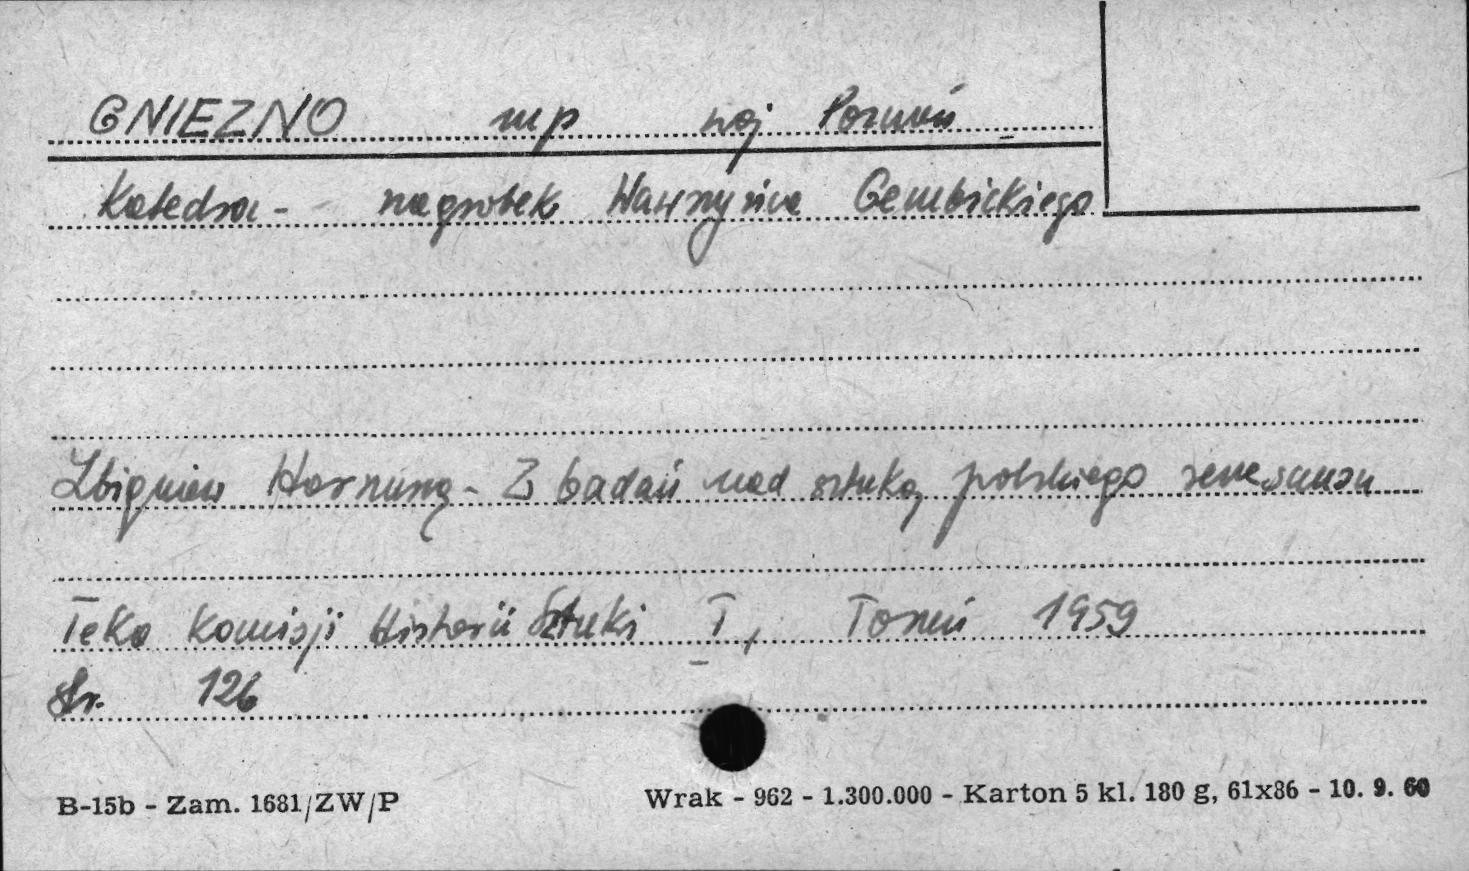 GNIEZNO mp woj Poznań
Katedra - nagrobek Wawrzyńca Gembickiego
Zbigniew Hornung - Z badań nad sztuką polskiego renesansu
Teka Komisji Historii Sztuki I, Toruń 1959
str. 126
B-15b - Zam. 1681/ZW/P Wrak - 962 - 1.300.000 - Karton 5 kl. 180 g, 61x86 - 10. 9. 60